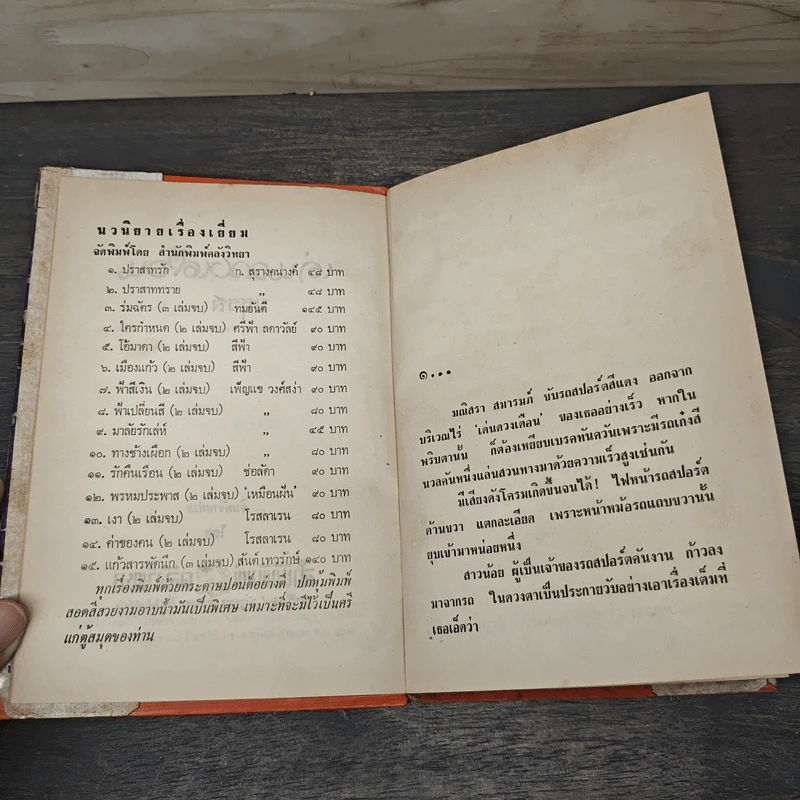 นวนิยายเรื่องเยี่ยม
จัดพิมพ์โดย สำนักพิมพ์คลังวิทยา
๑. ปราสาทรัก ก. สุรางคนางค์ ๔๘ บาท
๒. ปราสาททราย ,, ๔๘ บาท
๓. ร่มฉัตร (๓ เล่มจบ) ทมยันตี ๑๔๕ บาท
๔. ใครกำหนด (๒ เล่มจบ) ศรีฟ้า ลดาวัลย์ ๙๐ บาท
๕. โอ้มาดา (๒ เล่มจบ) สีฟ้า ๙๐ บาท
๖. เมืองแก้ว (๒ เล่มจบ) สีฟ้า ๙๐ บาท
๗. ฟ้าสีเงิน (๒ เล่มจบ) เพ็ญแข วงศ์สง่า ๙๐ บาท
๘. ฟ้าเปลี่ยนสี (๒ เล่มจบ) ,, ๘๐ บาท
๙. มาลัยรักเล่ห์ ,, ๔๕ บาท
๑๐. ทางช้างเผือก (๒ เล่มจบ) ,, ๘๐ บาท
๑๑. รักคืนเรือน (๒ เล่มจบ) ช่อลัดา ๙๐ บาท
๑๒. พรหมประพาส (๒ เล่มจบ) 'เหมือนฝัน' ๙๐ บาท
๑๓. เงา (๒ เล่มจบ) โรสลาเรน ๘๐ บาท
๑๔. ค่าของคน (๒ เล่มจบ) โรสลาเรน ๘๐ บาท
๑๕. แก้วสารพัดนึก (๓ เล่มจบ) สันต์ เทวรักษ์ ๑๔๐ บาท
ทุกเรื่องพิมพ์ด้วยกระดาษปอนด์อย่างดี ปกหุ้มพิมพ์
สอดสีสวยงามอาบน้ำมันเป็นพิเศษ เหมาะที่จะมีไว้เป็นศรี
แก่ตู้สมุดของท่าน
๑...
มณิสรา สมารมภ์ ขับรถสปอร์ตสีแดง ออกจาก
บริเวณไร่ 'เด่นดวงเดือน' ของเธออย่างเร็ว หากใน
พริบตานั้น ก็ต้องเหยียบเบรคทันควันเพราะมีรถเก๋งสี
นวลคันหนึ่งแล่นสวนทางมาด้วยความเร็วสูงเช่นกัน
มีเสียงดังโครมเกิดขึ้นจนได้! ไฟหน้ารถสปอร์ต
ด้านขวา แตกละเอียด เพราะหน้าหม้อรถแถบขวานั้น
ยุบเข้ามาหน่อยหนึ่ง
สาวน้อย ผู้เป็นเจ้าของรถสปอร์ตคันงาน ก้าวลง
มาจากรถ ในดวงตาเป็นประกายวับอย่างเอาเรื่องเต็มที่
เธอเอ็ดว่า